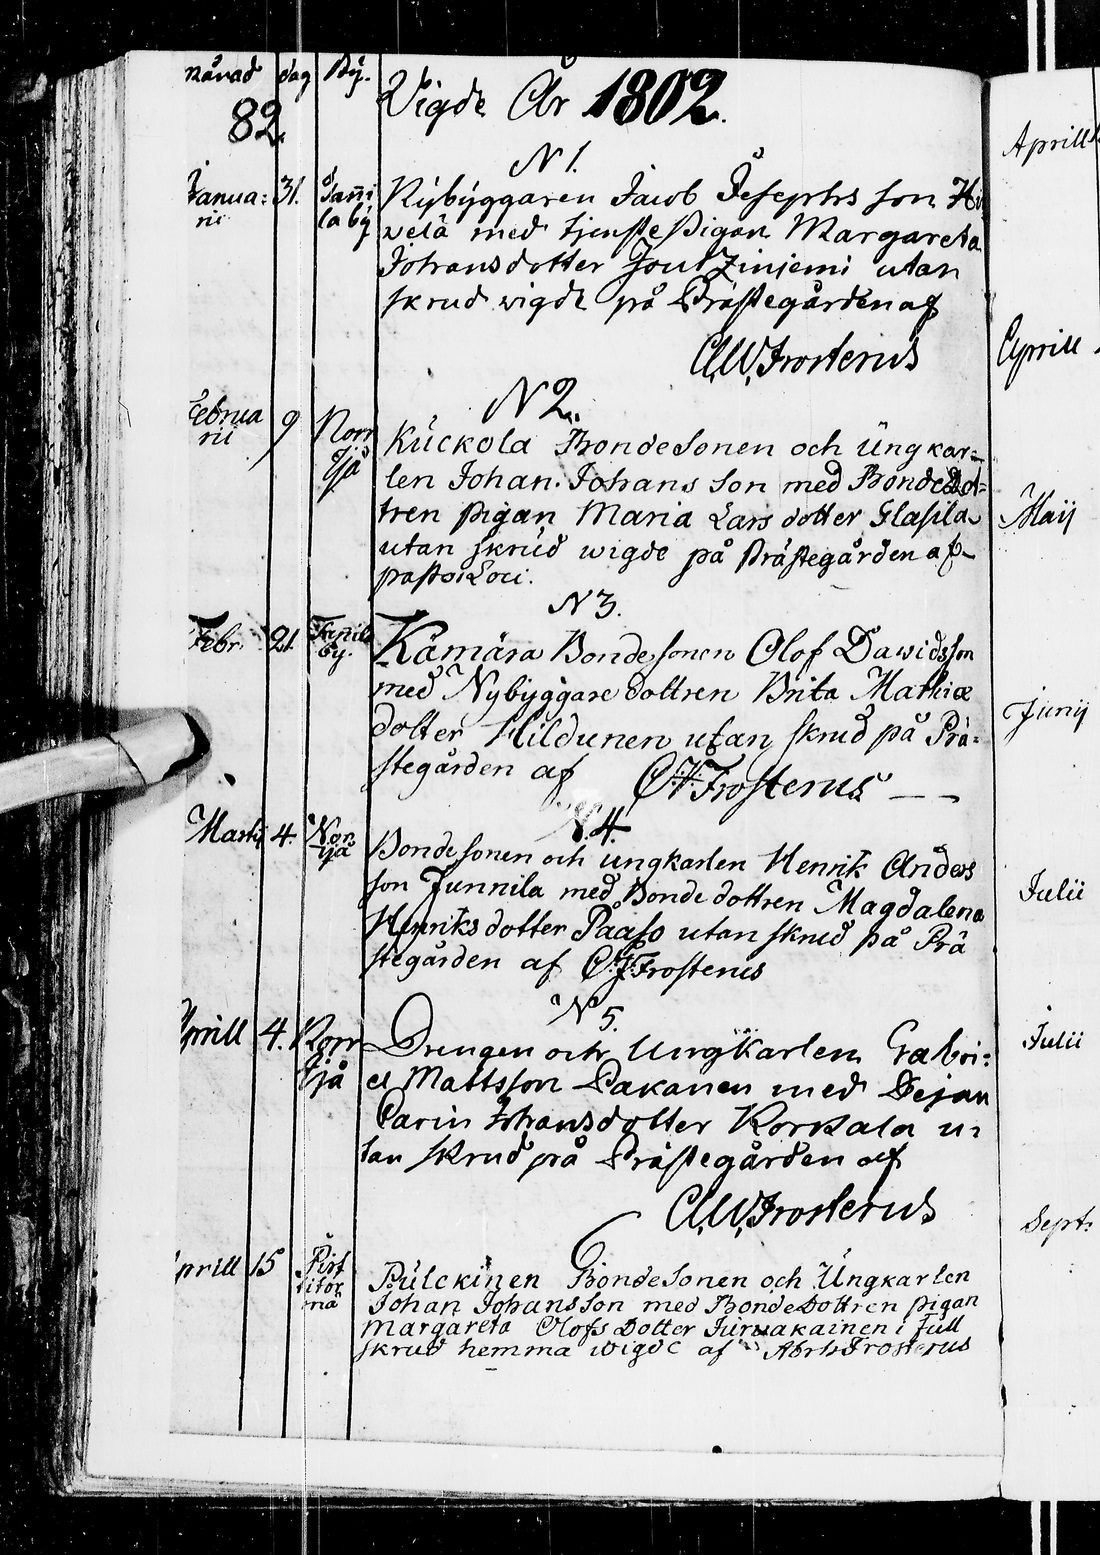 Månad dag By.
82.
Vigde År 1802.
N 1.
Janua: 31. Tani
rii la by
Nybyggaren Jacob Josephs son Hi
velä med tjenste Pigan Margareta
Johansdotter Joutziniemi utan
skrud wigde på Prästegården af
A,W,Frosterus
N 2.
Februa 9 Norr
rii Sjå
Kuckola Bondesonen och Ungkar=
len Johan Johans son med Bonde Dot=
tren pigan Maria Lars dotter Glasila
utan skrud wigde på Prästegården af
pastor Loci.
N 3.
Febr. 21. Tanila
by.
Kämärä Bondesonen Olof Dawidsson
med Nybyggare dottren Brita Mathiæ
dotter Hildunen utan skrud på Prä=
stegården af O:H:Frosterus
N. 4.
Martij 4. Nor
sjå
Bondesonen och ungkarlen Henrik Anders
son Junnila med Bonde dottren Magdalena
Henriksdotter Pååso utan skrud på Prä
stegården af O:H:Frosterus
N 5.
Aprill 4. Norr
Sjå
Drengen och Ungkarlen Gabri=
el Mattsson Pakanen med Pejan
Carin Johansdotter Korkala u=
tan skrud på Prästegården af
A,W,Frosterus
6
prill 15
Pulckinen BondeSonen och Ungkarlen
Johan Johansson med BondeDottren pigan
Margareta Olofs Dotter Jurwakainen i full
skrud hemma wigde af Abrh Frosterus
Aprill
Aprill
Maij
Junij
Julii
Julii
Sept: